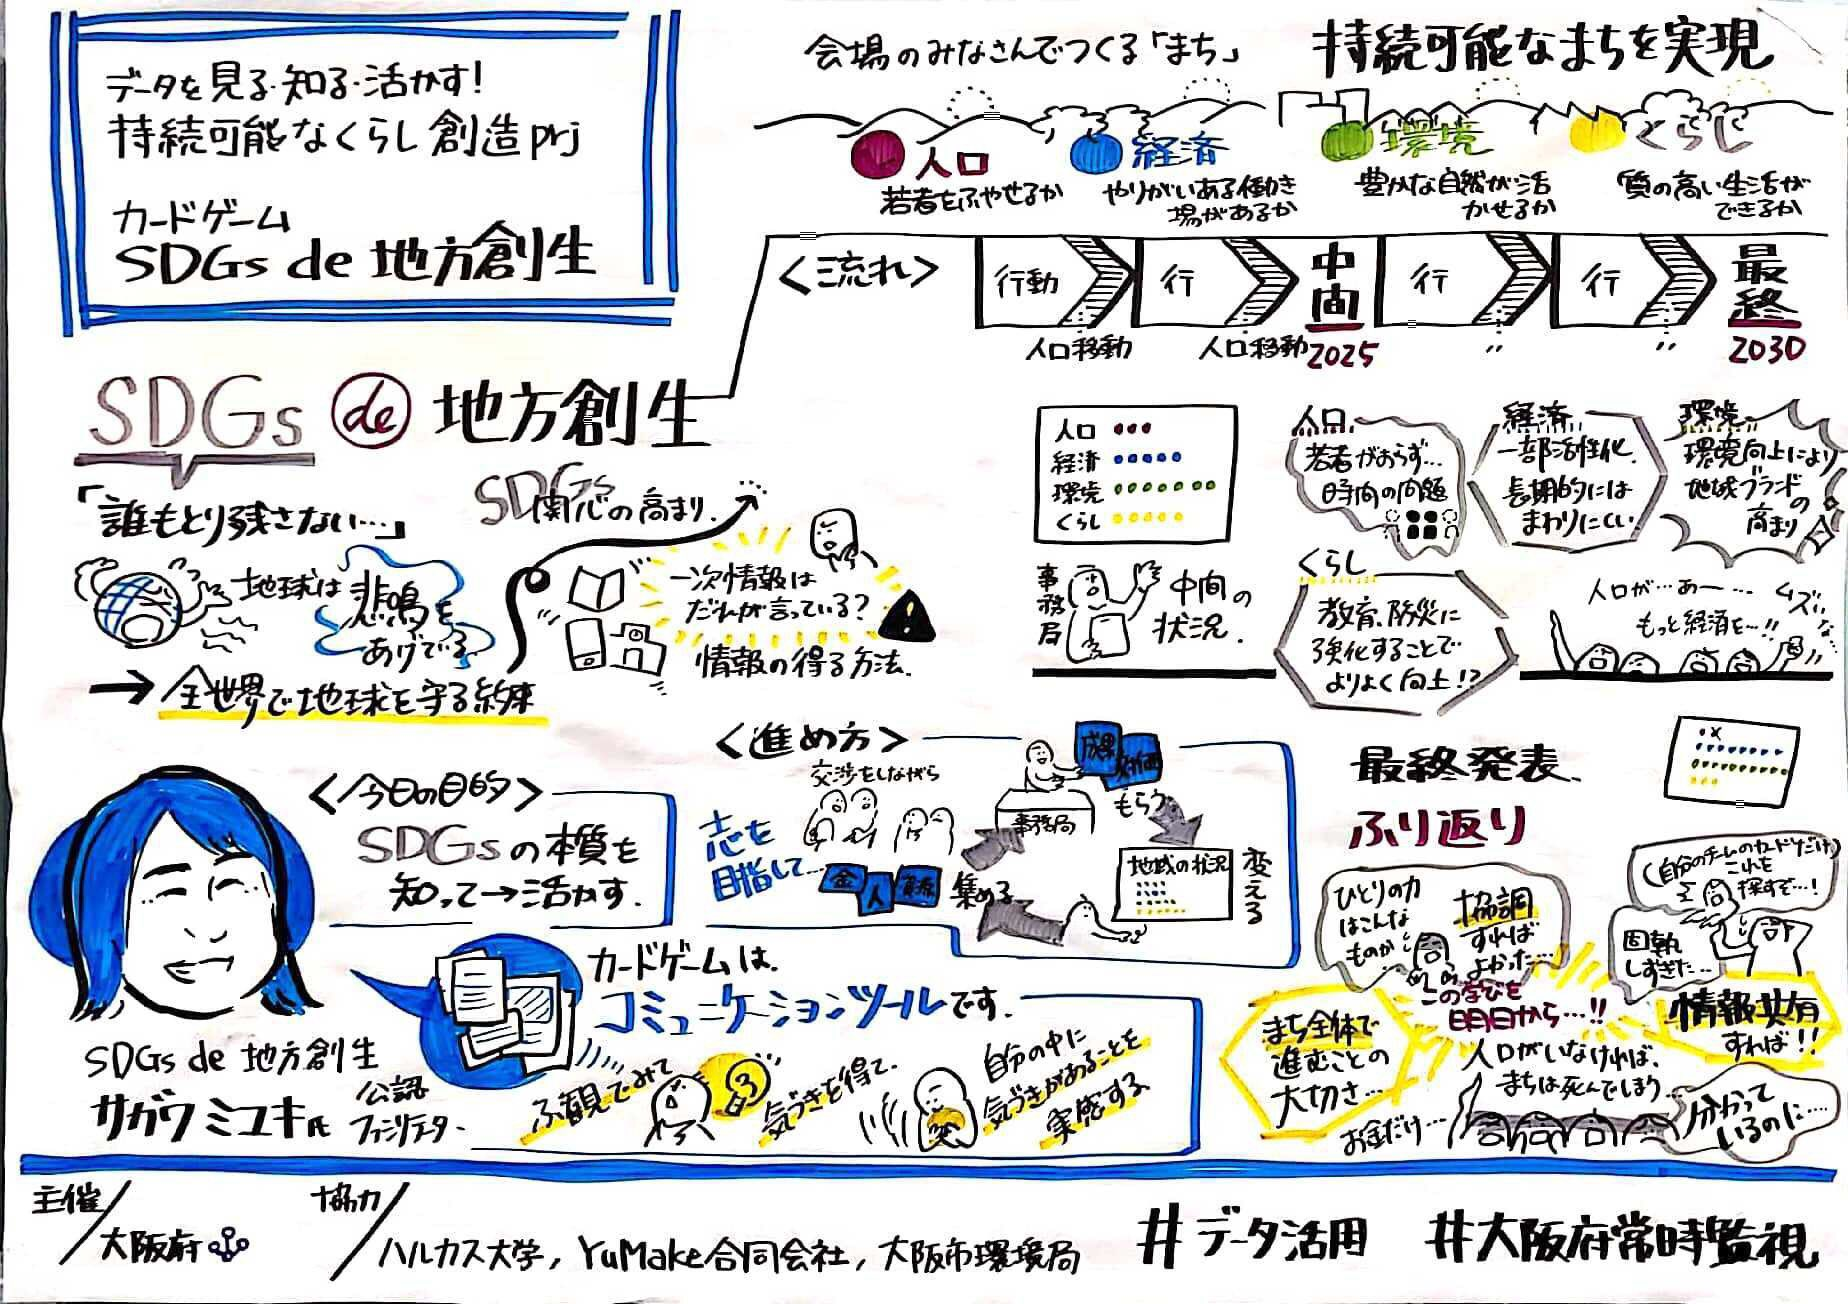 データを見る・知る・活かす!
持続可能なくらし創造prj
カードゲーム
SDGs de 地方創生
会場のみなさんでつくる「まち」
持続可能なまちを実現
人口
若者をふやせるか
経済
やりがいある働き
場があるか
環境
豊かな自然が活
かせるか
くらし
質の高い生活が
できるか
<流れ>
行動
人口移動
行
人口移動
中間
2025
行
〃
行
〃
最終
2030
SDGs de 地方創生
「誰もとり残さない…」
地球は
悲鳴を
あげてる
→全世界で地球を守る約束
SDGs
関心の高まり.
一次情報は
だれが言っている?
情報の得る方法.
人口
経済
環境
くらし
事務局
中間の
状況.
人口
若者がおらず…
時間の問題
経済
一部活性化.
長期的には
まわりにくい
環境
環境向上により
地域ブランド
の
高まり
くらし
教育、防災に
強化することで
よりよく向上!?
人口が…あー…
もっと経済を…!!
ムズいな…
<今日の目的>
SDGsの本質を
知って→活かす.
<進め方>
交渉をしながら
志を
目指して…
金
人
集める
事務局
成果
もらう
地域の状況
変える
カードゲームは.
コミュニケーションツールです.
SDGs de 地方創生
サガワ ミユキ氏
公認
ファシリテーター
ふ観でみて
気づきを得て.
自分の中に
気づきがあることを
実感する
最終発表.
ふり返り
ひとりの力
はこんな
ものか
協調
すれば
よかった…
この学びを
明日から…!!
(自分のチームのカードだけ)
これを
探すぞ…!
固執
しすぎた…
情報共有
すれば!!
まち全体で
進むことの
大切さ…
人口がいなければ、
まちは死んでしまう…
お金だけ…
分かって
いるのに…
主催/
大阪府
協力/
ハルカス大学, YuMake合同会社, 大阪市環境局
#データ活用 #大阪府常時監視